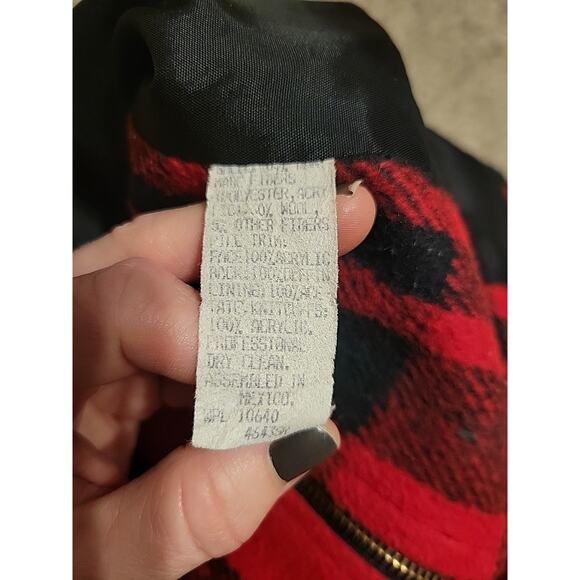 POLYESTER, ACRY
WOOL,
5% OTHER FIBERS
PILE TRIM:
FACE:100%ACRYLIC
BACK:100%
LINING:100%ACE
TATE.KNITCUFFS:
100% ACRYLIC.
PROFESSIONAL
DRY CLEAN.
ASSEMBLED IN
MEXICO.
WPL 10640